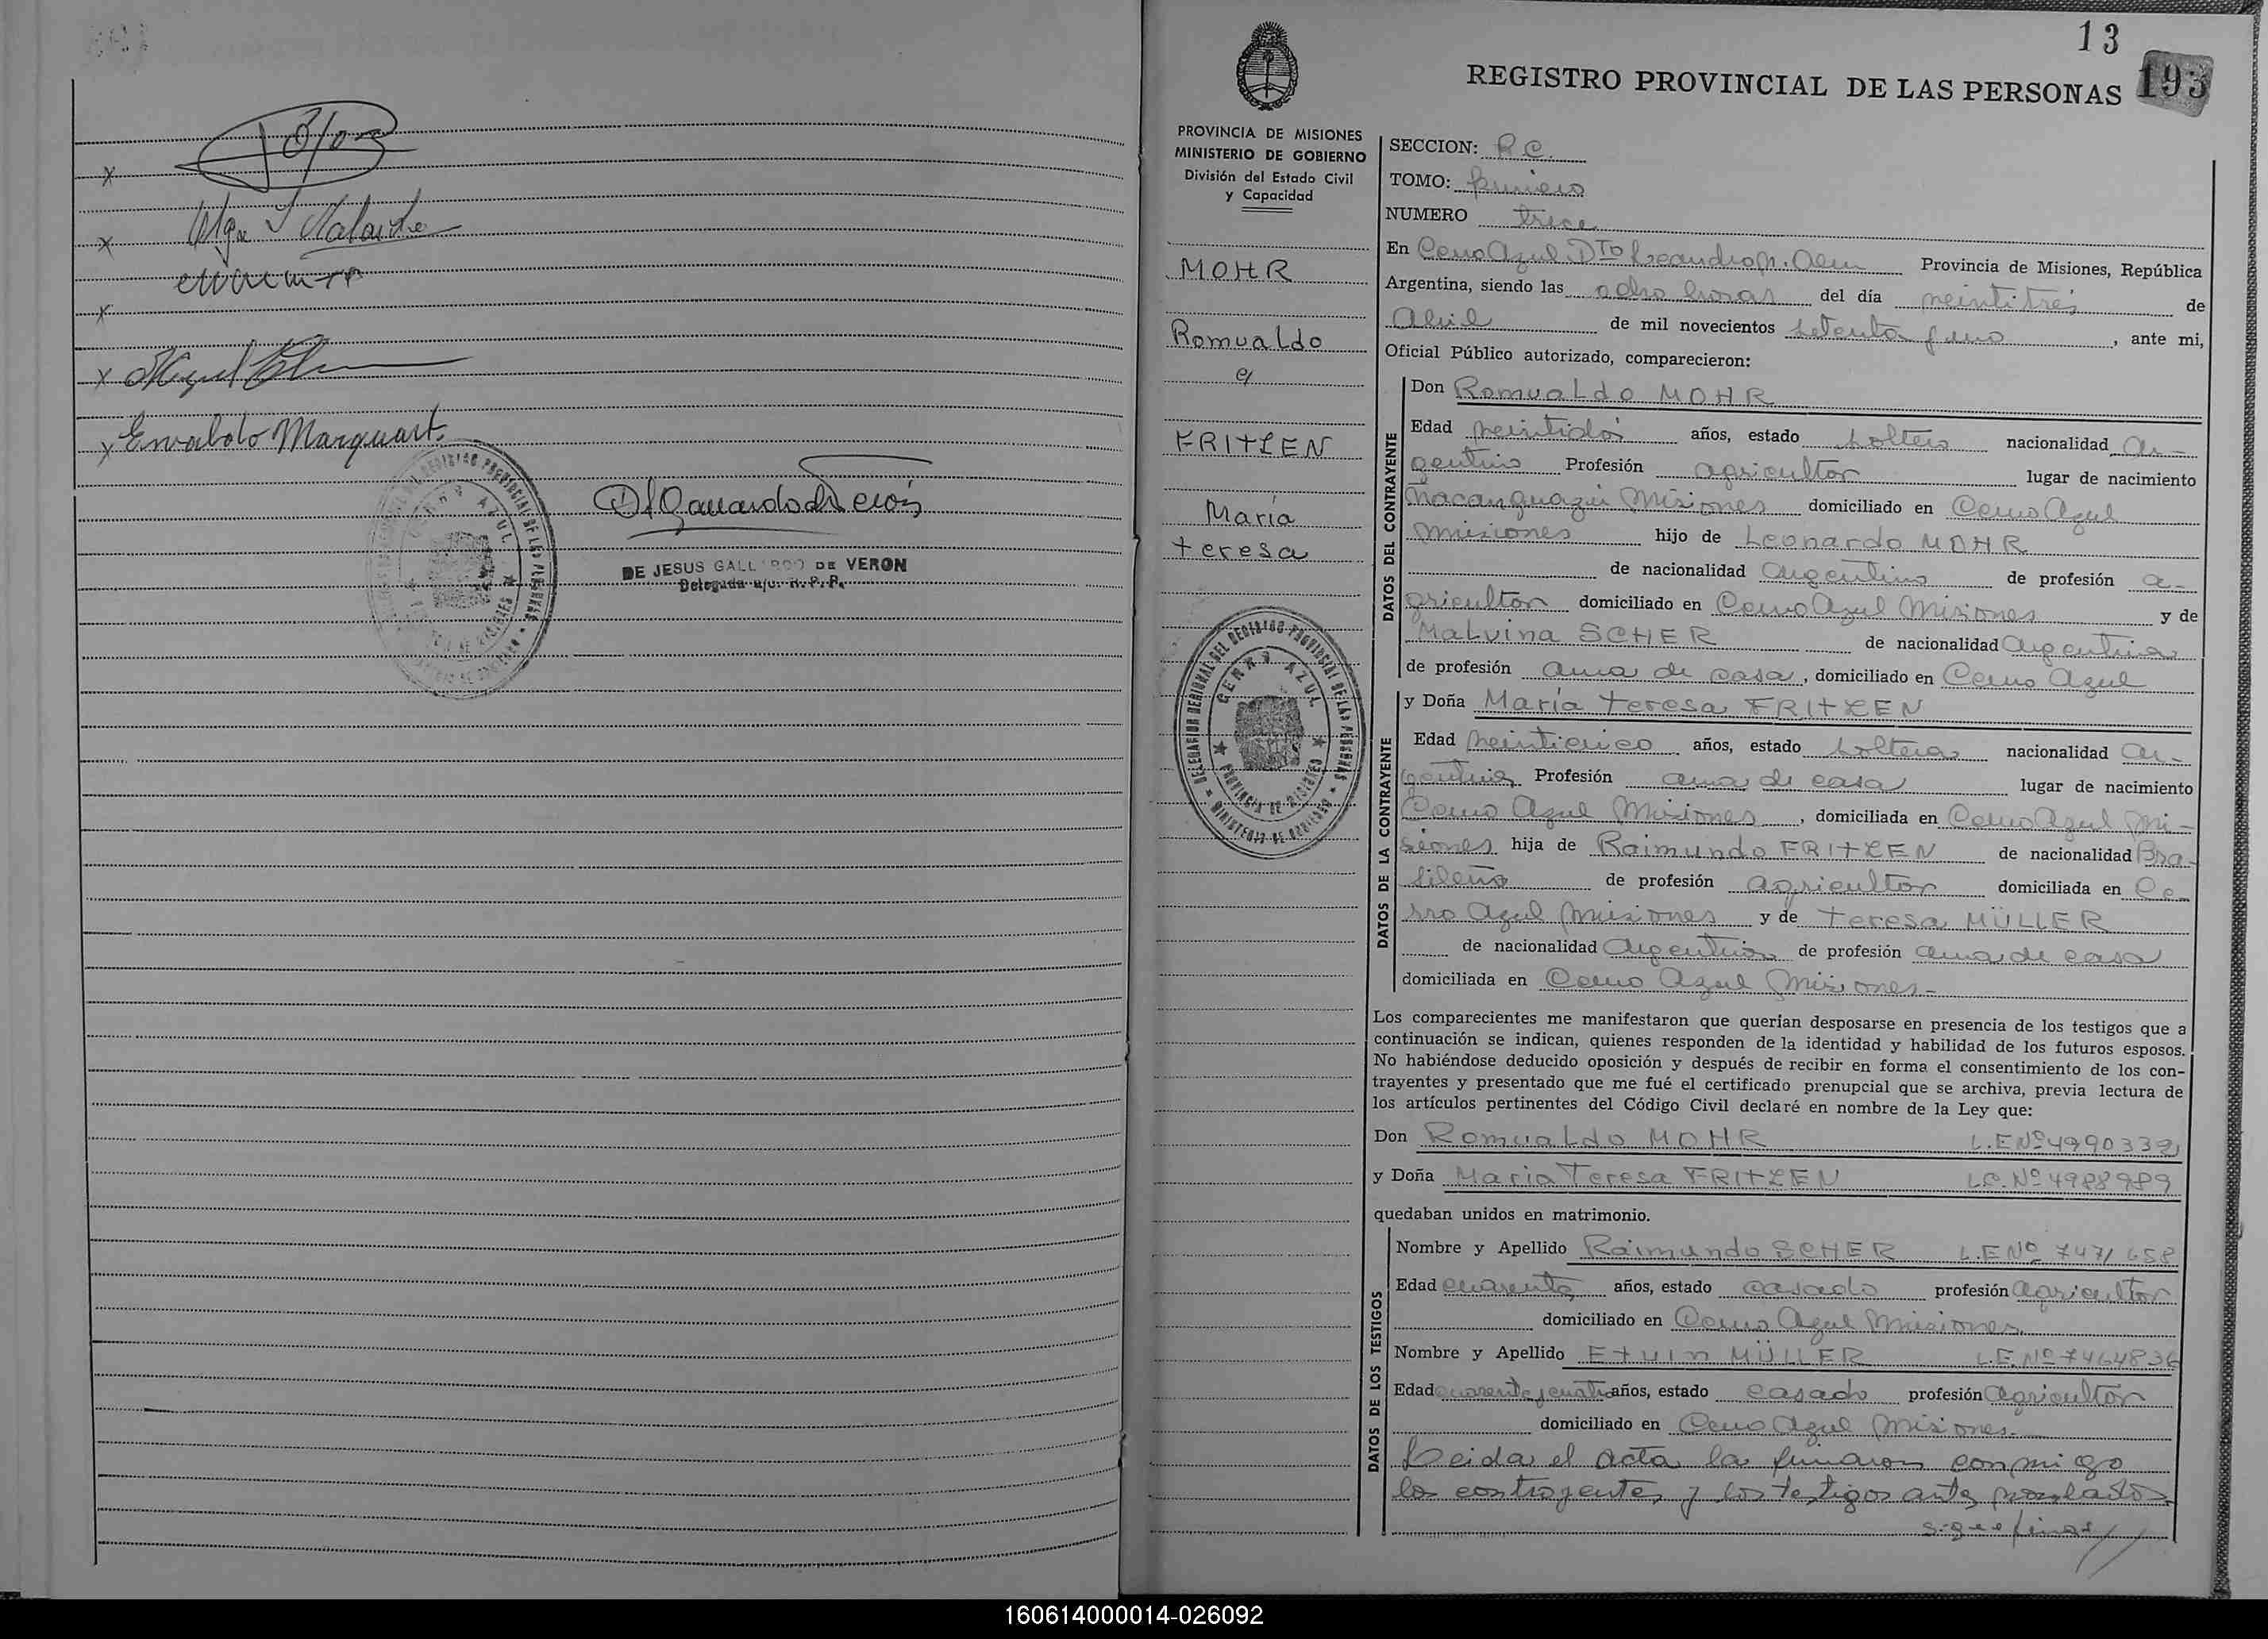 Olga I Malarke
Miguel
Ewaldo Marquart
DE JESUS GALLARDO DE VERON
Delegada a/c. R. P. P.
13
REGISTRO PROVINCIAL DE LAS PERSONAS 193
PROVINCIA DE MISIONES
MINISTERIO DE GOBIERNO
División del Estado Civil
y Capacidad
MOHR
Romualdo
y
FRITZEN
María
teresa
DELEGACION REGIONAL DEL REGISTRO PROVINCIAL DE LAS PERSONAS
CERRO AZUL
PROVINCIA DE MISIONES
MINISTERIO DE GOBIERNO
SECCION: R.C.
TOMO: primero
NUMERO trece
En Cerro Azul Dto Leandro N. Alem Provincia de Misiones, República
Argentina, siendo las ocho horas del día veintitrés de
Abril de mil novecientos setenta y uno, ante mi,
Oficial Público autorizado, comparecieron:
DATOS DEL CONTRAYENTE
Don Romualdo MOHR
Edad veintidós años, estado soltero nacionalidad Ar-
gentino Profesión agricultor lugar de nacimiento
Ñacanguazú Misiones domiciliado en Cerro Azul
Misiones hijo de Leonardo MOHR
de nacionalidad Argentino de profesión a-
gricultor domiciliado en Cerro Azul Misiones y de
Malvina SCHER de nacionalidad Argentina
de profesión ama de casa, domiciliado en Cerro Azul
DATOS DE LA CONTRAYENTE
y Doña María teresa FRITZEN
Edad veinticinco años, estado soltera nacionalidad Ar-
gentina Profesión ama de casa lugar de nacimiento
Cerro Azul Misiones, domiciliada en Cerro Azul Mi-
siones hija de Raimundo FRITZEN de nacionalidad Bra-
sileño de profesión agricultor domiciliada en Ce-
rro Azul Misiones y de teresa MÜLLER
de nacionalidad Argentina de profesión ama de casa
domiciliada en Cerro Azul Misiones-
Los comparecientes me manifestaron que querían desposarse en presencia de los testigos que a
continuación se indican, quienes responden de la identidad y habilidad de los futuros esposos.
No habiéndose deducido oposición y después de recibir en forma el consentimiento de los con-
trayentes y presentado que me fué el certificado prenupcial que se archiva, previa lectura de
los artículos pertinentes del Código Civil declaré en nombre de la Ley que:
Don Romualdo MOHR L.E Nº 4990332
y Doña Maria Teresa FRITZEN L.C. Nº 4988989
quedaban unidos en matrimonio.
DATOS DE LOS TESTIGOS
Nombre y Apellido Raimundo SCHER L.E Nº 7471658
Edad cuarenta años, estado casado profesión agricultor
domiciliado en Cerro Azul Misiones
Nombre y Apellido Etuin MÜLLER L.E. Nº 7464836
Edad cuarenta y cuatro años, estado casado profesión agricultor
domiciliado en Cerro Azul Misiones.
Leida el acta la firmaron conmigo
los contrayentes y los testigos antes nombrados
sigue firmas
160614000014-026092